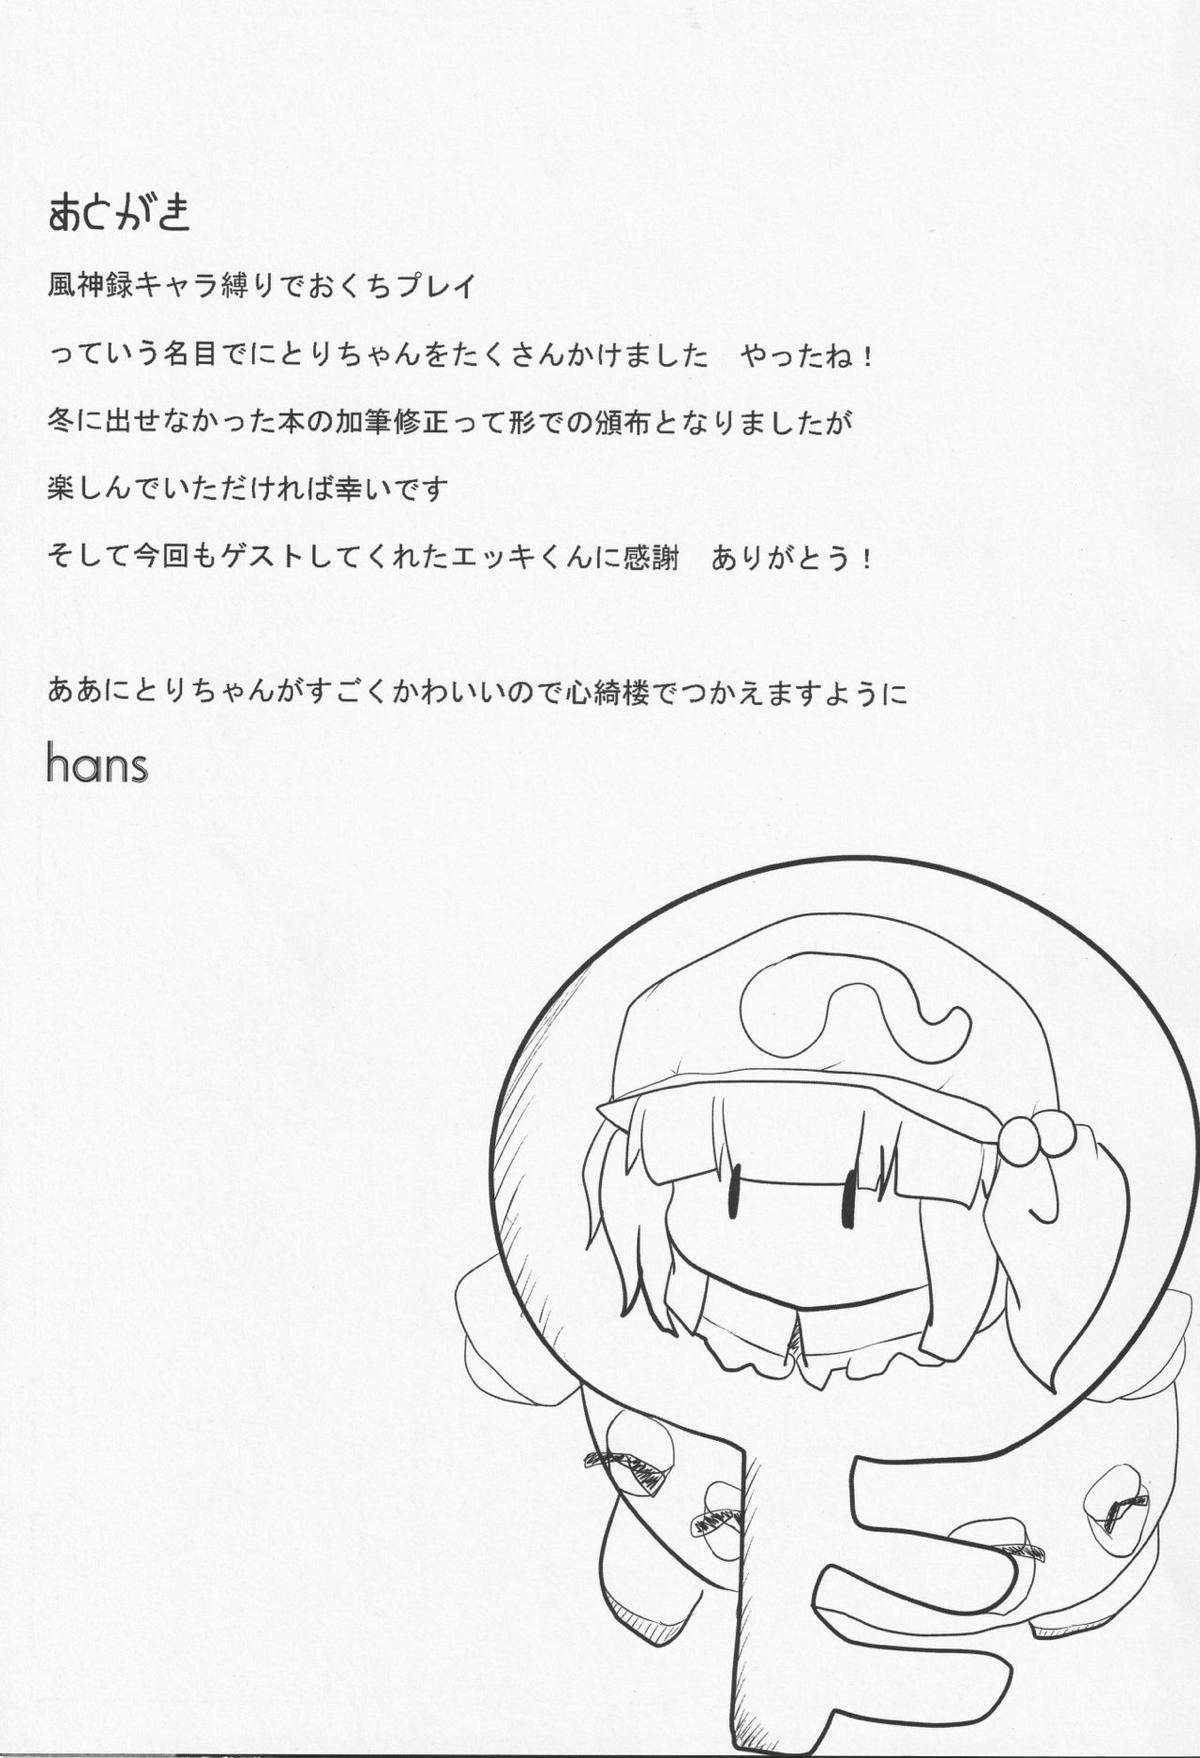 あとがき
風神録キャラ縛りでおくちプレイ
っていう名目でにとりちゃんをたくさんかけました　やったね！
冬に出せなかった本の加筆修正って形での頒布となりましたが
楽しんでいただければ幸いです
そして今回もゲストしてくれたエッキくんに感謝　ありがとう！
ああにとりちゃんがすごくかわいいので心綺楼でつかえますように
hans